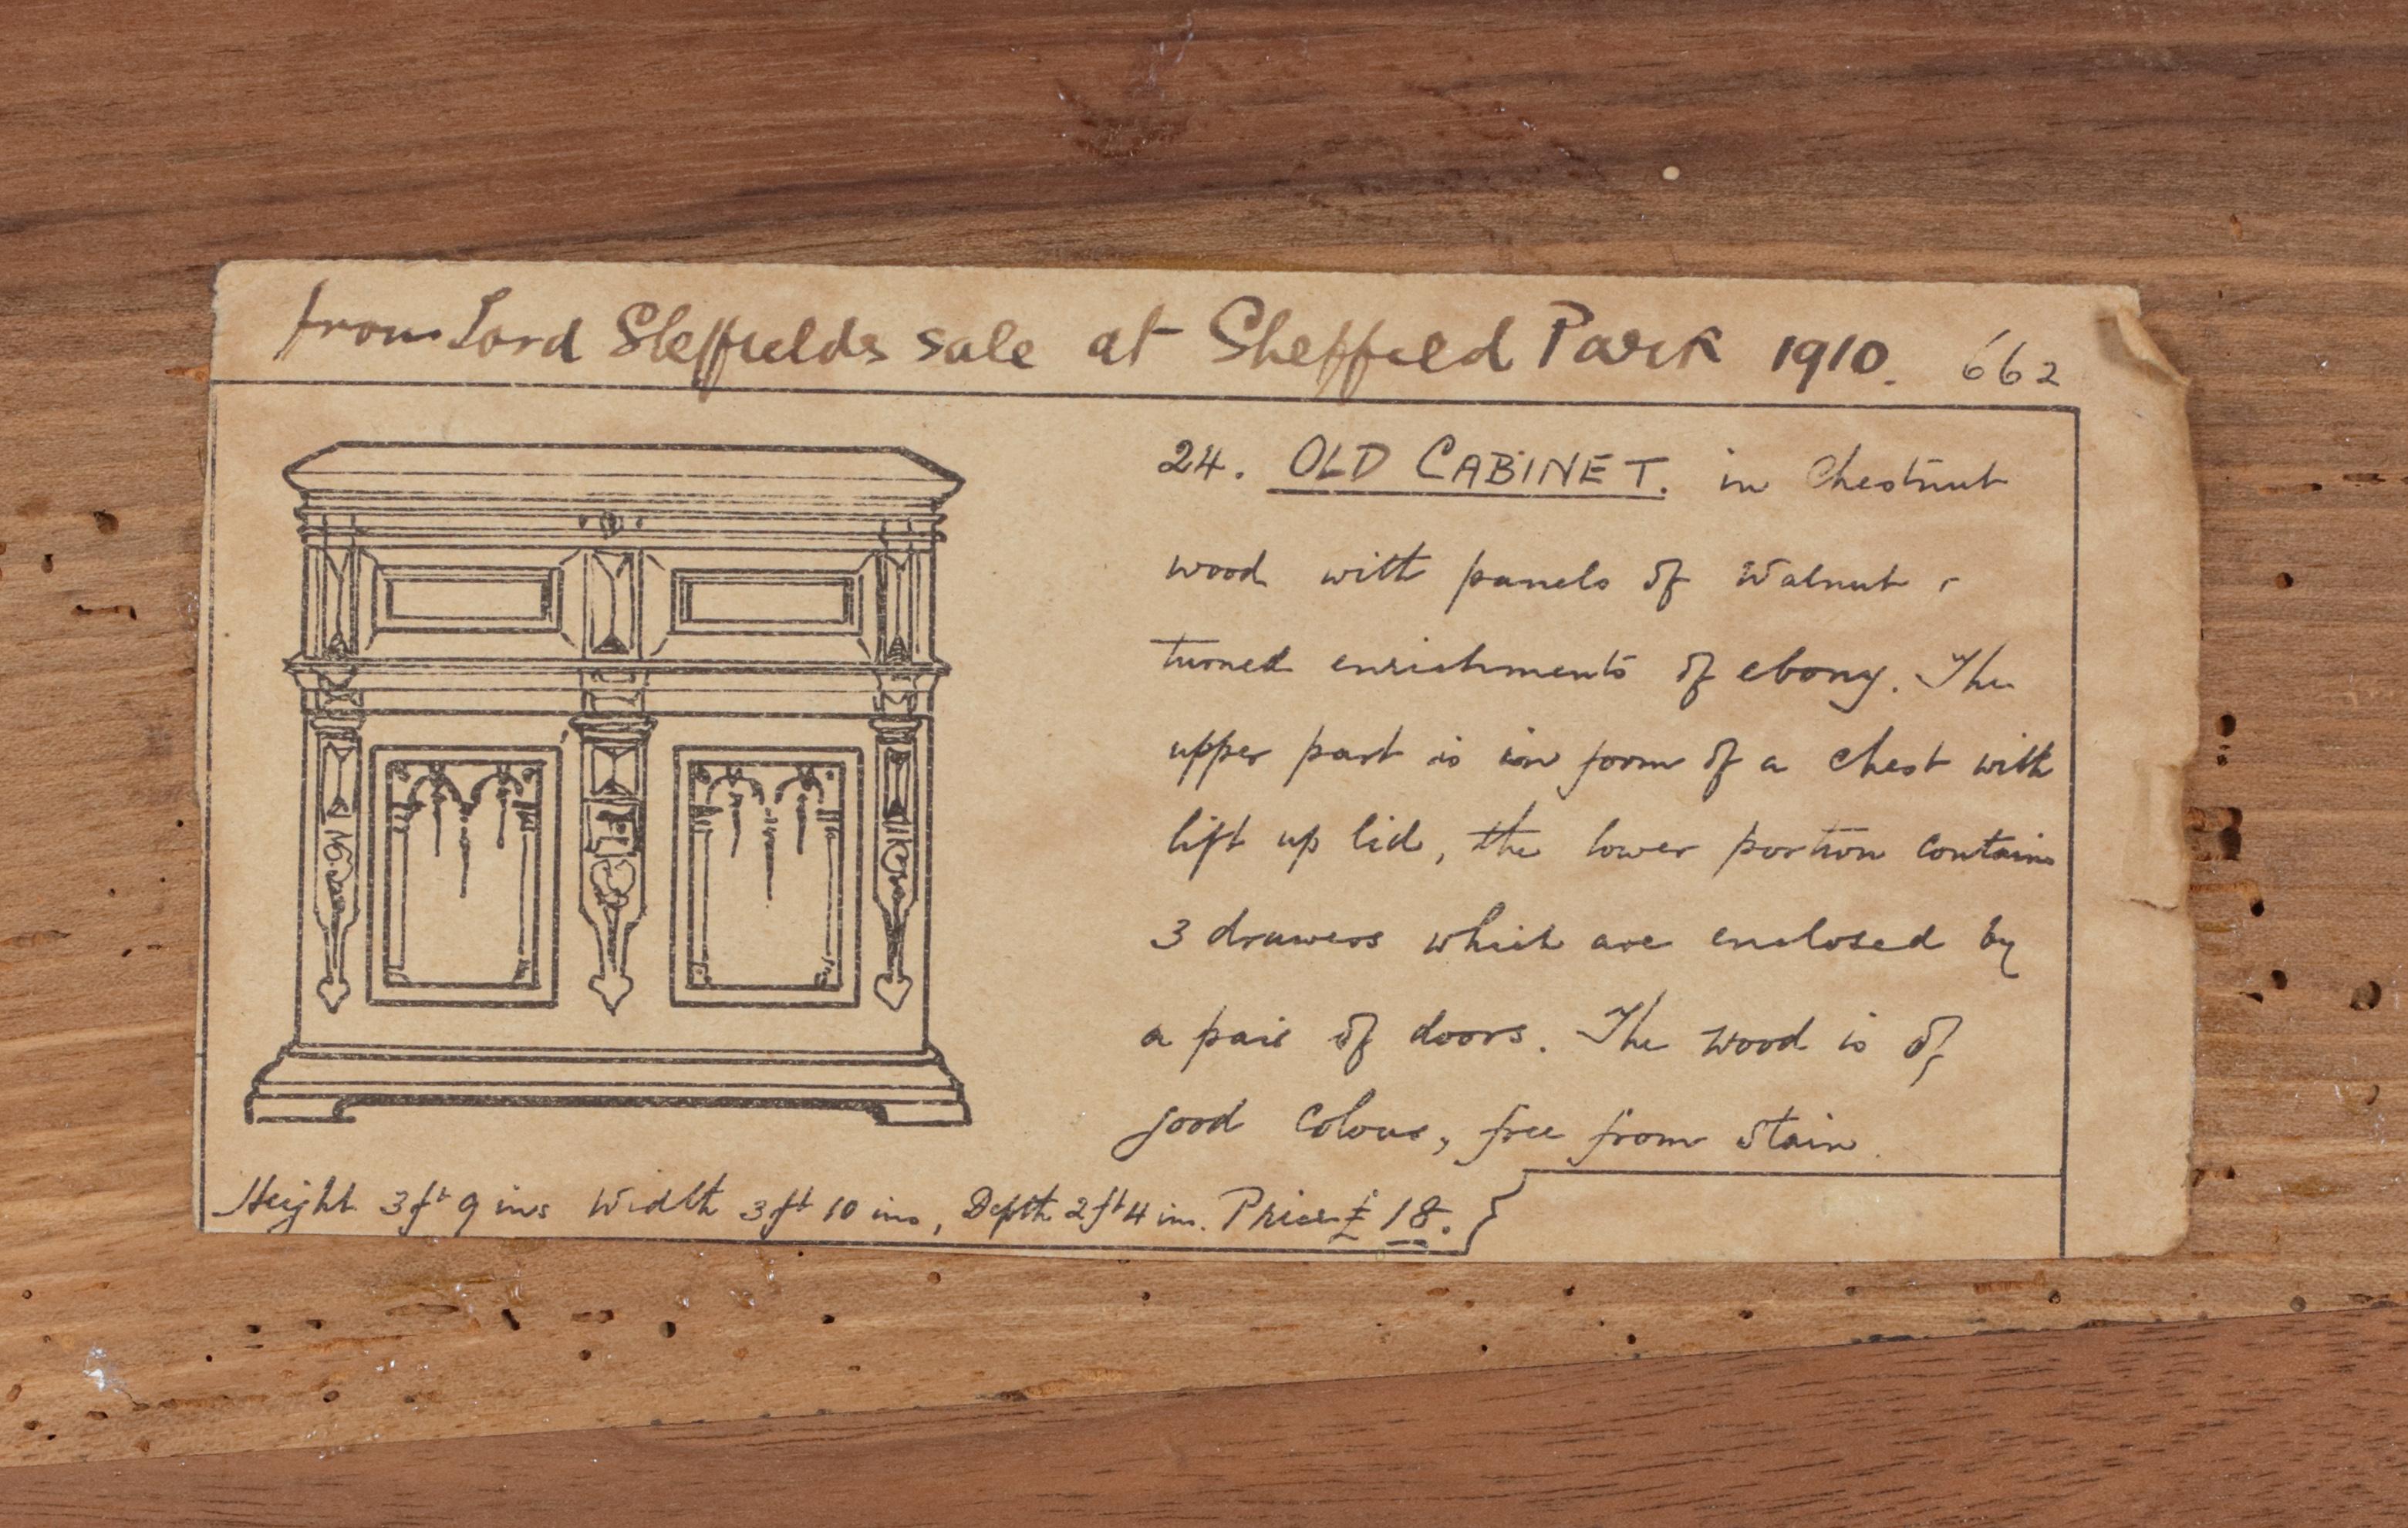 from Lord Sheffields sale at Sheffield Park 1910. 662
24. OLD CABINET. in Chestnut
wood with panels of Walnut &
turned enrichments of ebony. The
upper part is in form of a chest with
lift up lid, the lower portion contains
3 drawers which are enclosed by
a pair of doors. The wood is of
good colour, free from stain.
Height 3ft 9 ins Width 3ft 10 ins, Depth 2ft 4 in. Price £18.